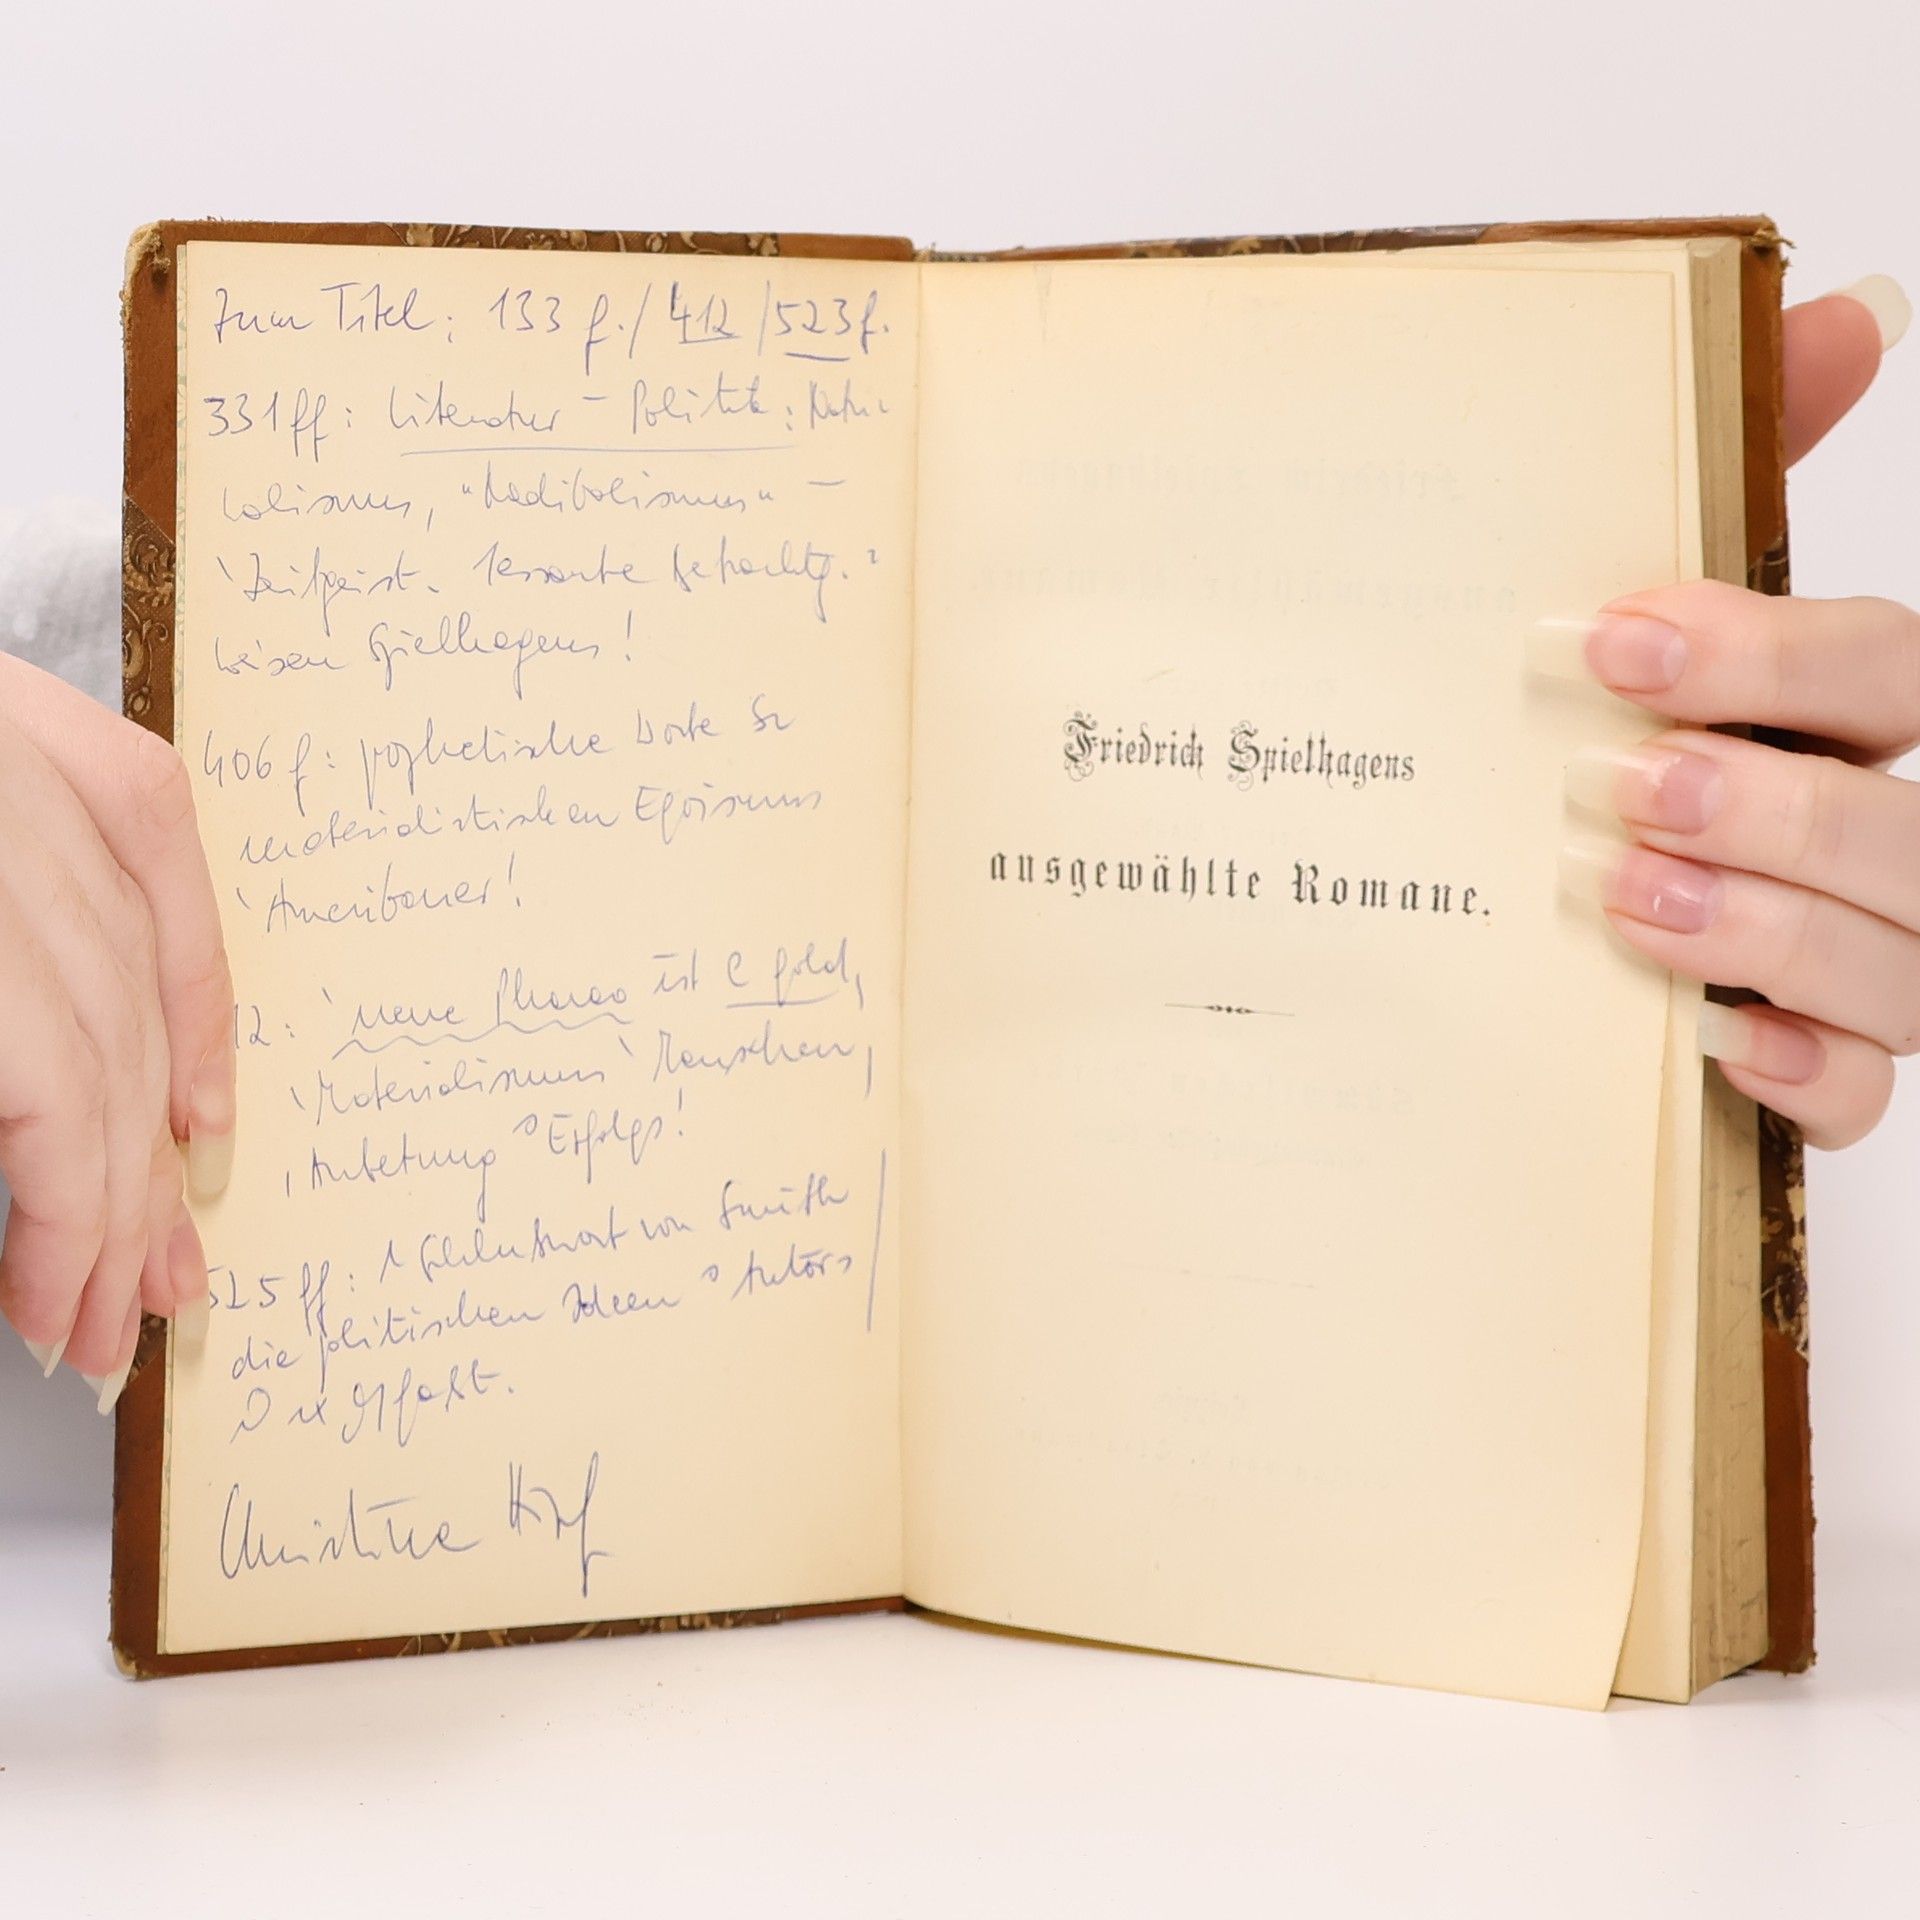 zum Titel: 133 f. / 412 / 523 f.
331 ff: Literatur – Politik: Natu-
ralismus, "Radikalismus" –
Zeitgeist.
weisen Spielhagens!
406 f: prophetische Worte
materialistischen Egoismus
Amerikaner!
12: neue Pharao ist Gold,
Materialismus Menschen,
Anbetung Erfolgs!
525 ff: von Smith
die politischen Ideen Autors

Christine
Friedrich Spielhagens
ausgewählte Romane.